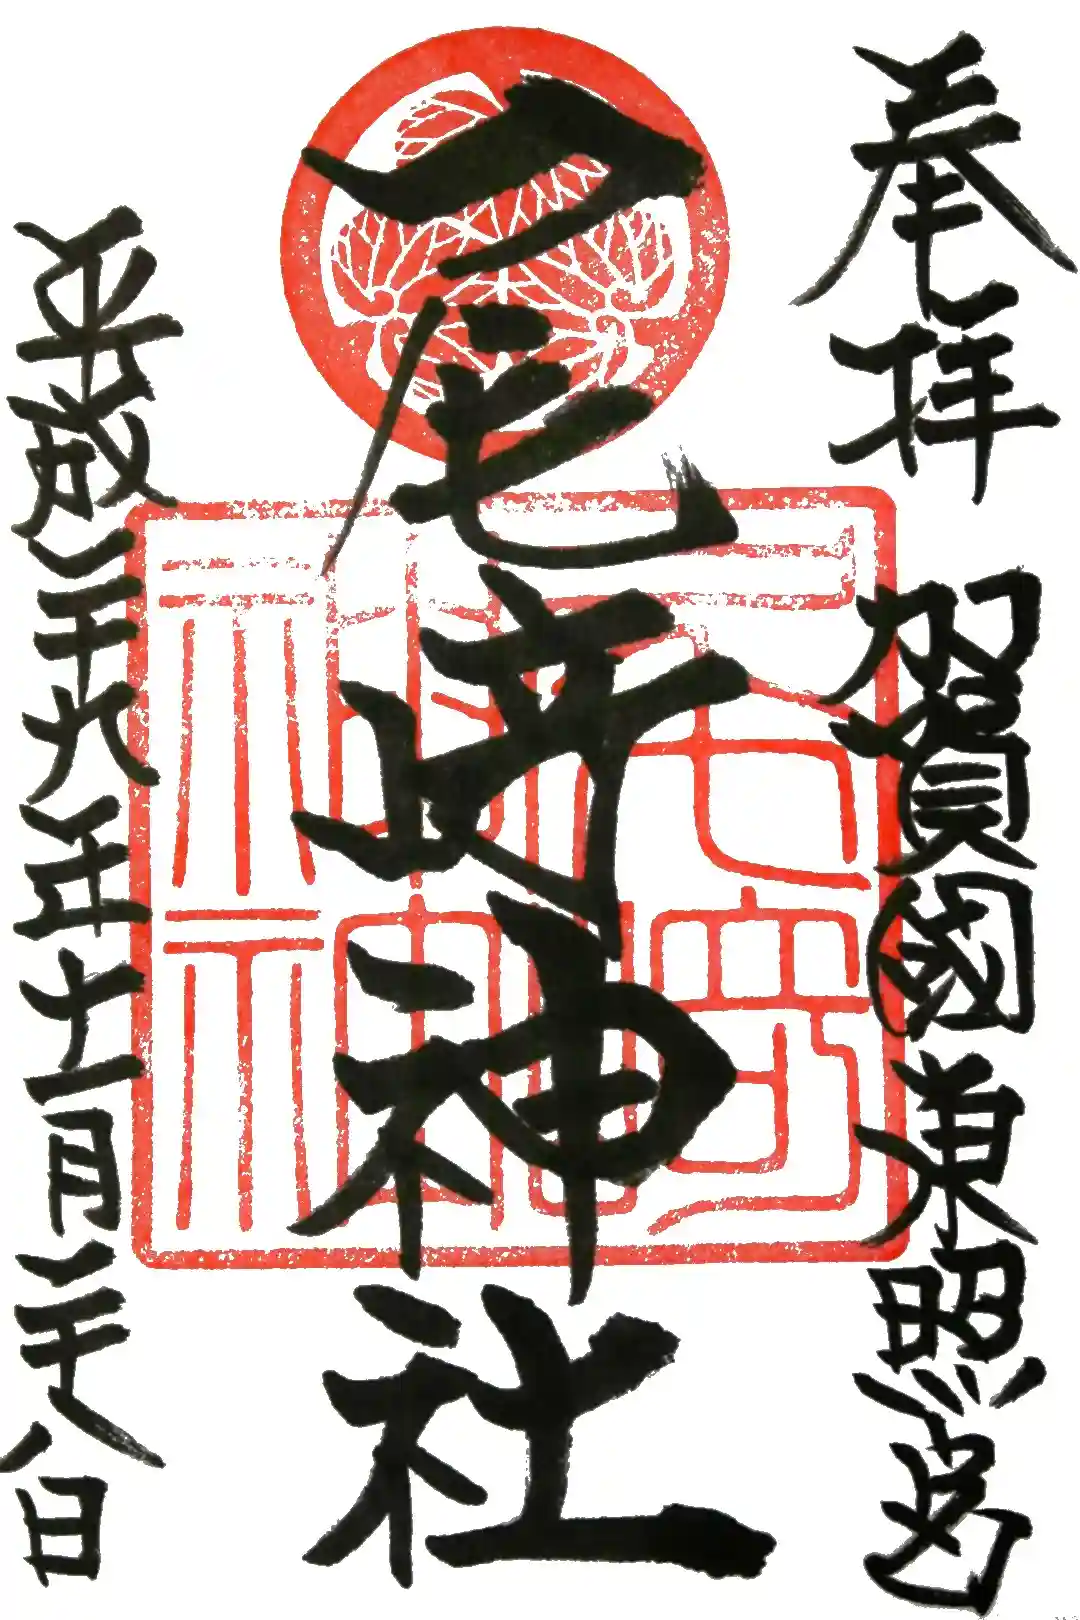 奉拝 加賀國東照宮
尾崎神社
平成二十九年十一月二十八日